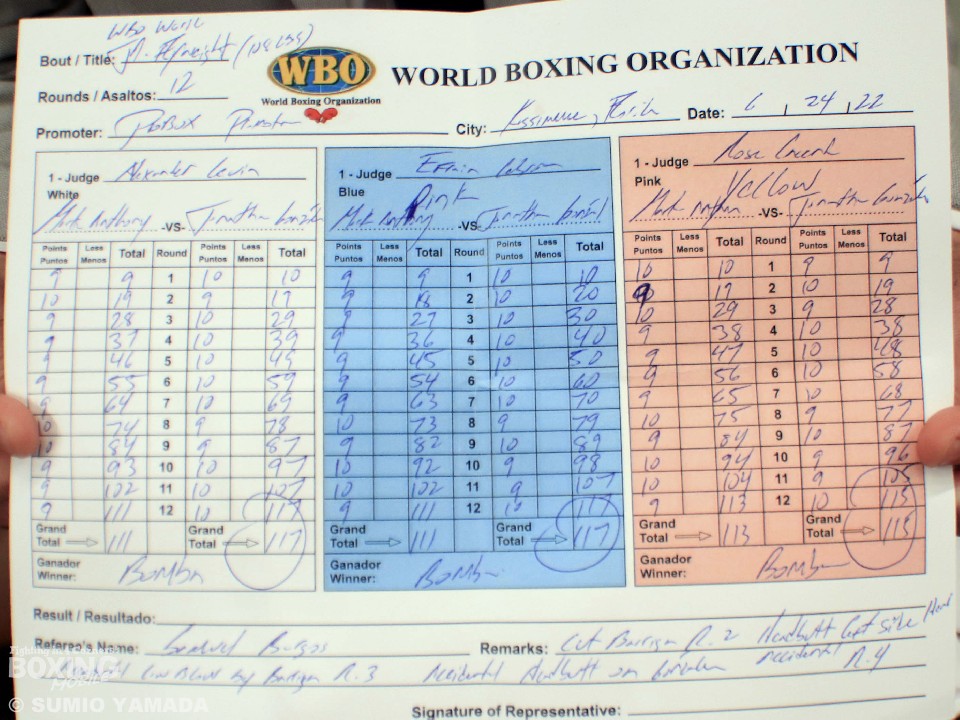 WBO World
Bout / Title: Jr. Flyweight (108 LBS)
WBO
World Boxing Organization
WORLD BOXING ORGANIZATION
Rounds / Asaltos: 12
Promoter: Promotion City: Kissimmee, Florida Date: 6 , 24 , 22
1 - Judge Alexander Levin
White
Mark Anthony -VS- Jonathan González
Points Puntos Less Menos Total Round Points Puntos Less Menos Total
9 9 1 10 10
10 19 2 9 19
9 28 3 10 29
9 37 4 10 39
9 46 5 10 49
9 55 6 10 59
9 64 7 10 69
10 74 8 9 78
10 84 9 9 87
9 93 10 10 97
9 102 11 10 107
9 111 12 10 117
Grand Total 111 Grand Total 117
Ganador
Winner: Bomba
1 - Judge Efrain
Blue Pink
Mark Anthony -VS- Jonathan González
Points Puntos Less Menos Total Round Points Puntos Less Menos Total
9 9 1 10 10
9 18 2 10 20
9 27 3 10 30
9 36 4 10 40
9 45 5 10 50
9 54 6 10 60
9 63 7 10 70
10 73 8 9 79
9 82 9 10 89
10 92 10 9 98
10 102 11 9 107
9 111 12 10 117
Grand Total 111 Grand Total 117
Ganador
Winner: Bomba
1 - Judge Jose
Pink Yellow
Mark Anthony -VS- Jonathan González
Points Puntos Less Menos Total Round Points Puntos Less Menos Total
10 10 1 9 9
9 19 2 10 19
10 29 3 9 28
9 38 4 10 38
9 47 5 10 48
9 56 6 10 58
9 65 7 10 68
10 75 8 9 77
9 84 9 10 87
10 94 10 9 96
10 104 11 9 105
9 113 12 10 115
Grand Total 113 Grand Total 115
Ganador
Winner: Bomba
Result / Resultado:
Referee's Name: Burgos Remarks: Cut Barriga R. 2 Headbutt Left Side Head
by Barriga R. 3 Accidental Headbutt on Accidental R. 4
Signature of Representative:
BOXING
© SUMIO YAMADA